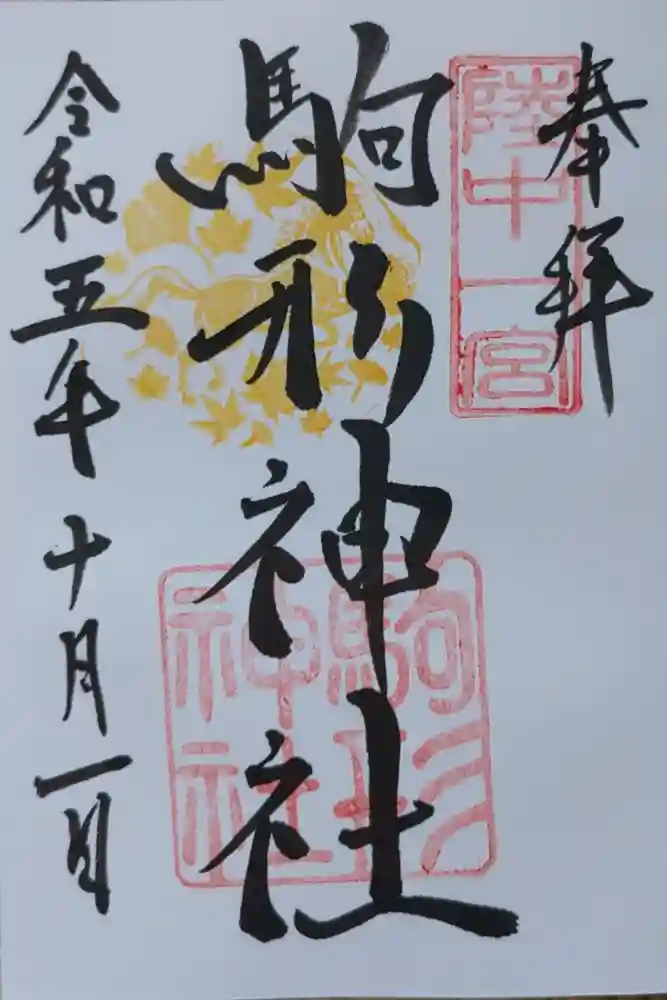 奉拝
陸中一宮
駒形神社
駒形神社
令和五年十月一日